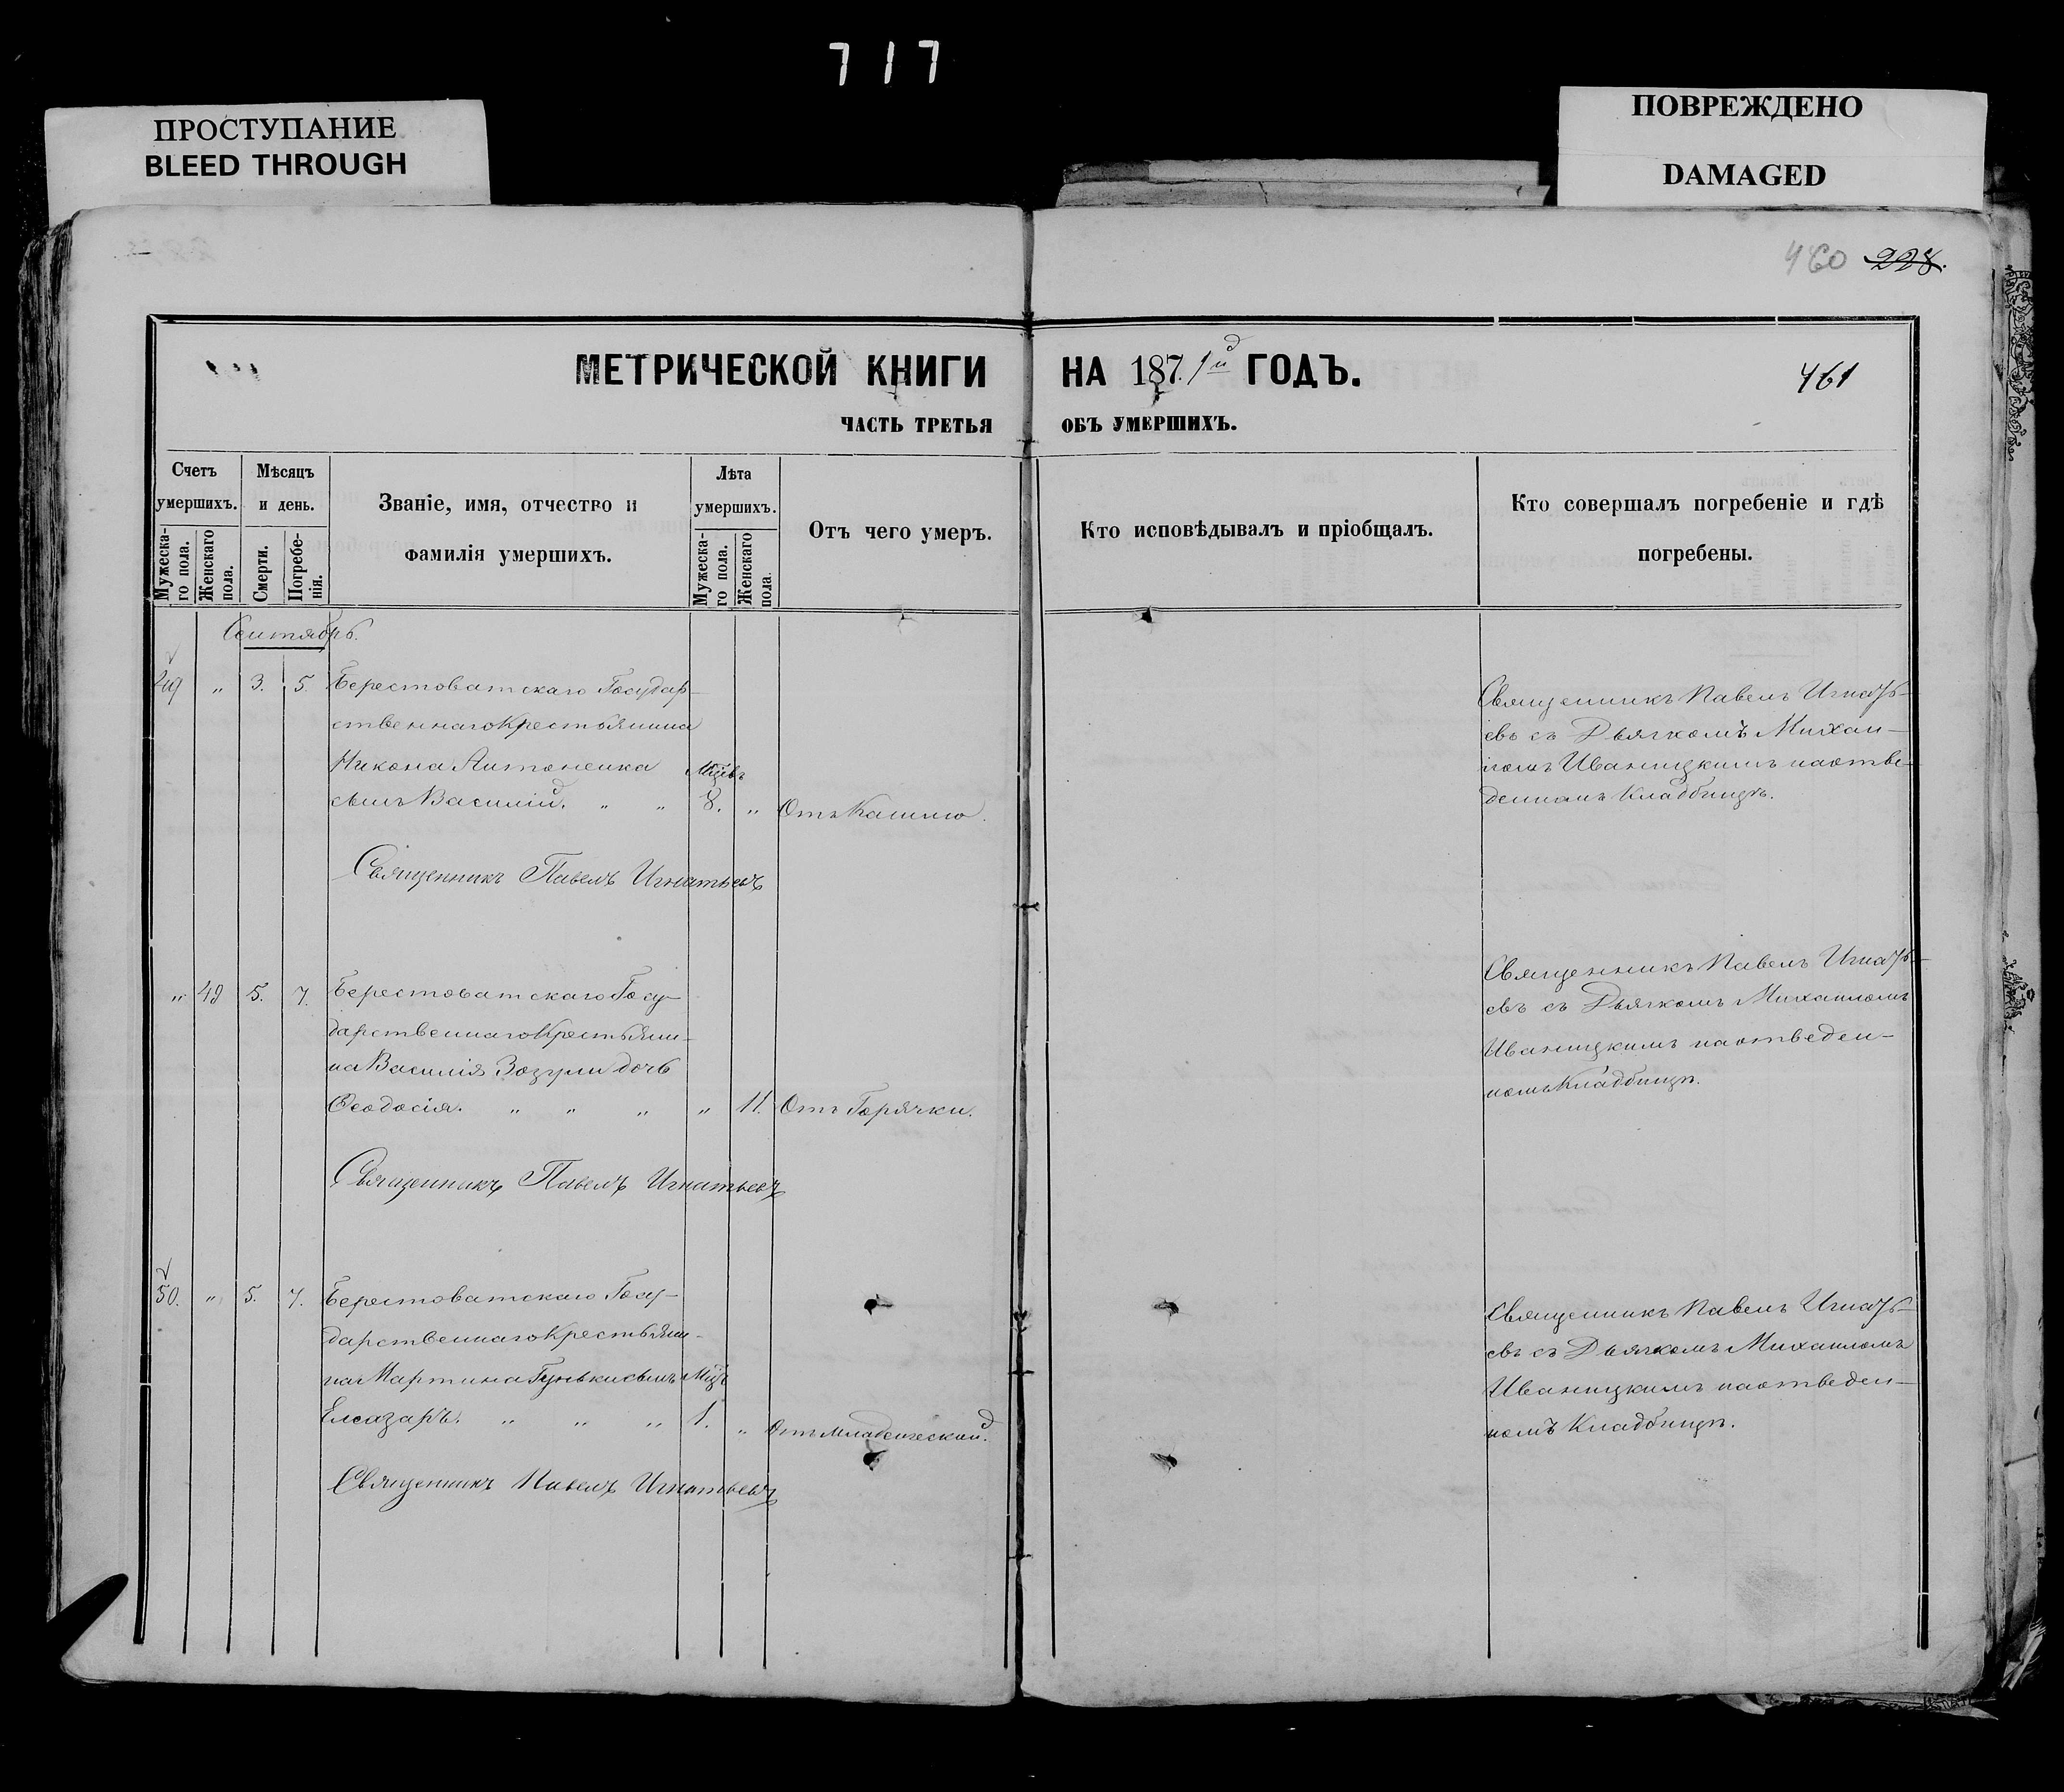 717
ПРОСТУПАНИЕ
BLEED THROUGH
ПОВРЕЖДЕНО
DAMAGED
460 228.
МЕТРИЧЕСКОЙ КНИГИ НА 1871й ГОДЪ.
461
ЧАСТЬ ТРЕТЬЯ ОБЪ УМЕРШИХЪ.
Счетъ умершихъ.
Мужеска-го пола.
Женскаго пола.
Мѣсяцъ и день.
Смерти.
Погребе-нія.
Званіе, имя, отчество и
фамилія умершихъ.
Лѣта умершихъ.
Мужеска-го пола.
Женскаго пола.
Отъ чего умеръ.
Кто исповѣдывалъ и пріобщалъ.
Кто совершалъ погребеніе и гдѣ
погребены.
Сентябрь.
49 " 3. 5. Берестоватскаго Государ-
ственнаго Крестьянина
Никона Антоненка
сынъ Василій. " " 8. " Отъ Кашлю.
Священникъ Павелъ Игнатьевъ
Священникъ Павелъ Игнать-
евъ съ Дьячкомъ Михаи-
ломъ Иваницкимъ на отве-
денномъ Кладбищѣ.
" 49 5. 7. Берестоватскаго Госу-
дарственнаго Крестьяни-
на Василія Зозули дочь
Феодосія. " " " " 11. Отъ Горячки.
Священникъ Павелъ Игнатьевъ
Священникъ Павелъ Игнать-
евъ съ Дьячкомъ Михаиломъ
Иваницкимъ на отведен-
номъ Кладбищѣ.
50. " 5. 7. Берестоватскаго Госу-
дарственнаго Крестьяни-
на Мартина Гуньки сынъ
Елеазаръ. " " " 1. " Отъ младенческой.
Священникъ Павелъ Игнатьевъ
Священникъ Павелъ Игнать-
евъ съ Дьячкомъ Михаиломъ
Иваницкимъ на отведен-
номъ Кладбищѣ.